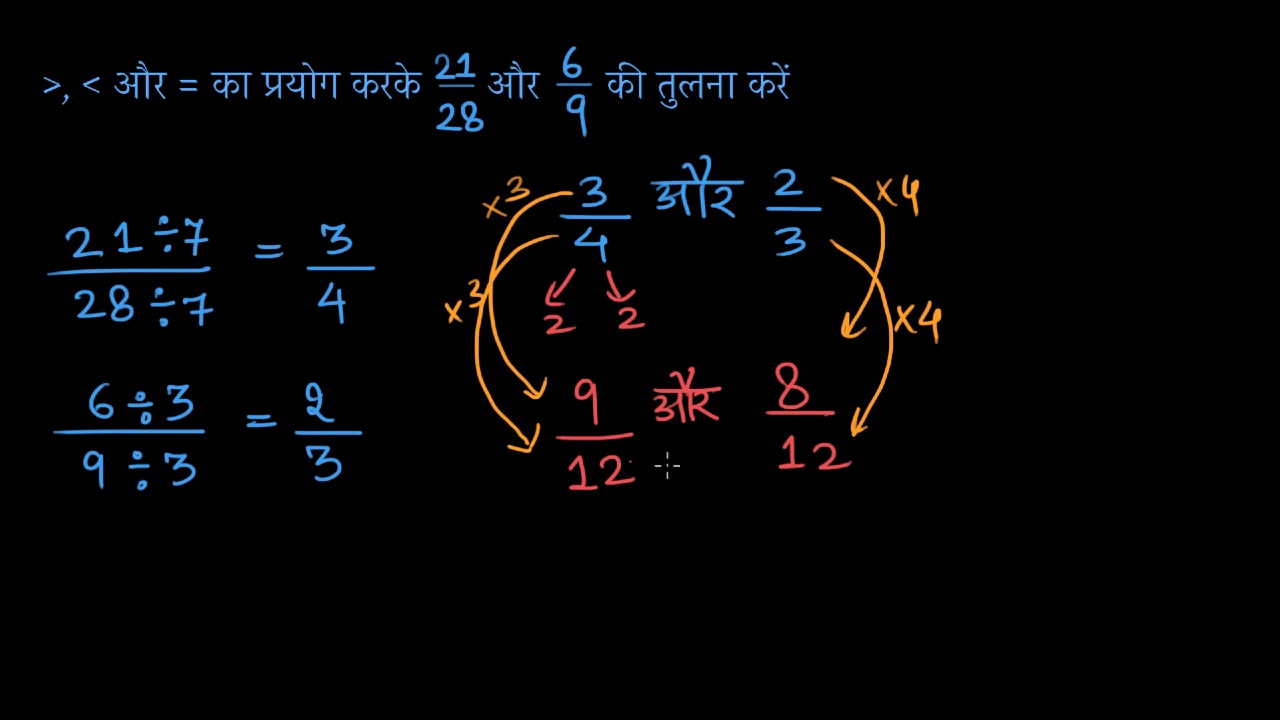 >, < और = का प्रयोग करके 21/28 और 6/9 की तुलना करें
21÷7/28÷7 = 3/4
6÷3/9÷3 = 2/3
×3 3/4 और 2/3 ×4
×3 2 2 ×4
9/12 और 8/12